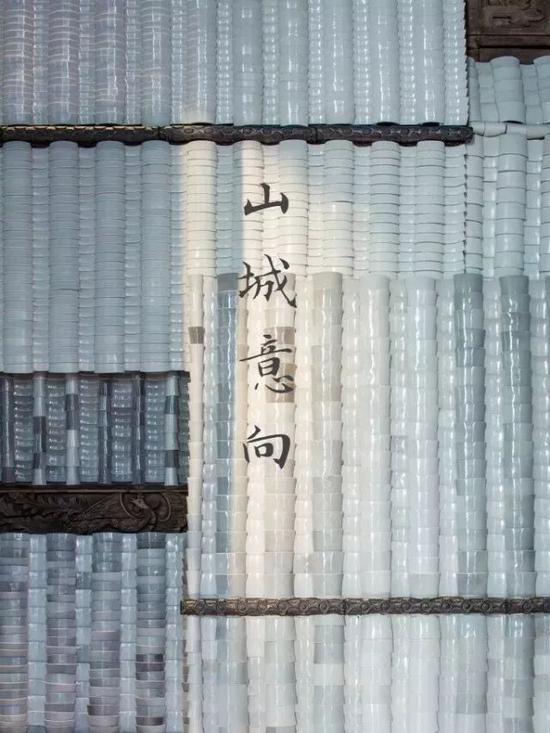 山城意向